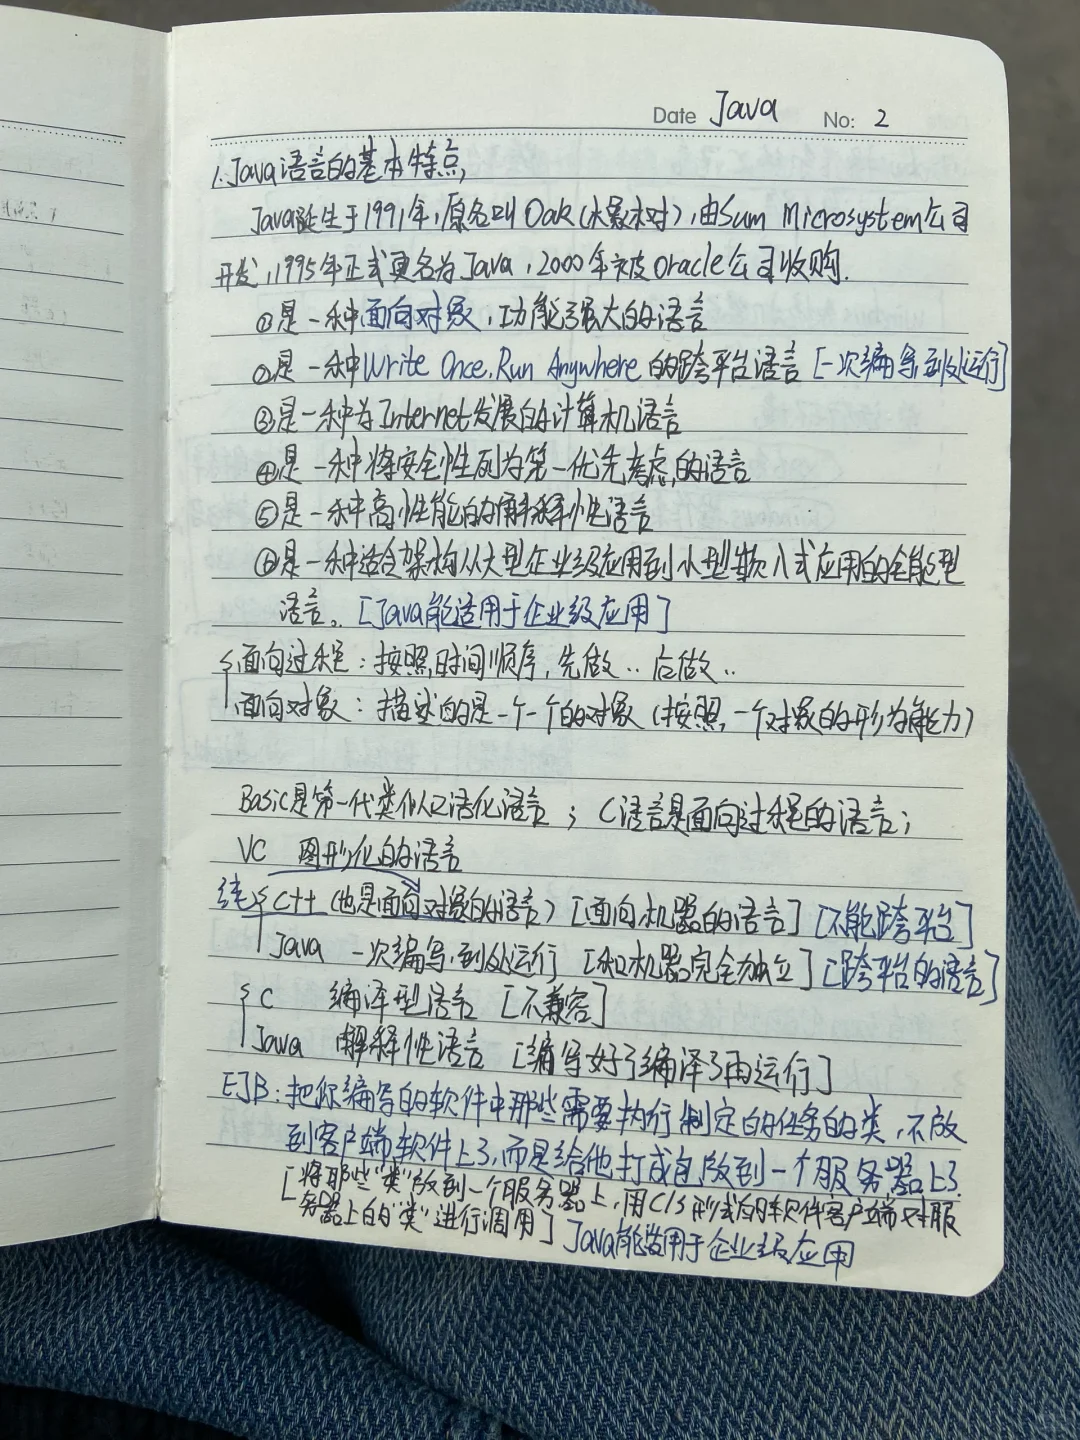 Date Java No: 2
1.Java语言的基本特点,
Java诞生于1991年,原名叫Oak(水橡树),由Sum Microsystem公司
开发,1995年正式更名为Java,2000年被Oracle公司收购.
①是一种面向对象,功能强大的语言
②是一种Write Once,Run Anywhere的跨平台语言[一次编写,到处运行]
③是一种为Internet发展的计算机语言
④是一种将安全性列为第一优先考虑的语言
⑤是一种高性能的解释性语言
⑥是一种适合架构从大型企业级应用到小型嵌入式应用的全能型
语言。[Java能适用于企业级应用]
面向过程:按照时间顺序,先做‥后做‥
面向对象:描述的是一个一个的对象(按照一个对象的形为能力)
Basic是第一代类似口语化语言;C语言是面向过程的语言;
VC 图形化的语言
纯 C++(也是面向对象的语言)[面向机器的语言][不能跨平台]
Java 一次编写,到处运行 [和机器完全独立][跨平台的语言]
C 编译型语言 [不兼容]
Java 解释性语言 [编写好了编译了再运行]
EJB:把你编写的软件中那些需要执行制定的任务的类,不放
到客户端软件上了,而是给他打成包放到一个服务器上了.
[将那些"类"放到一个服务器上,用C/S形式的软件客户端对服
务器上的"类"进行调用] Java能常用于企业级应用